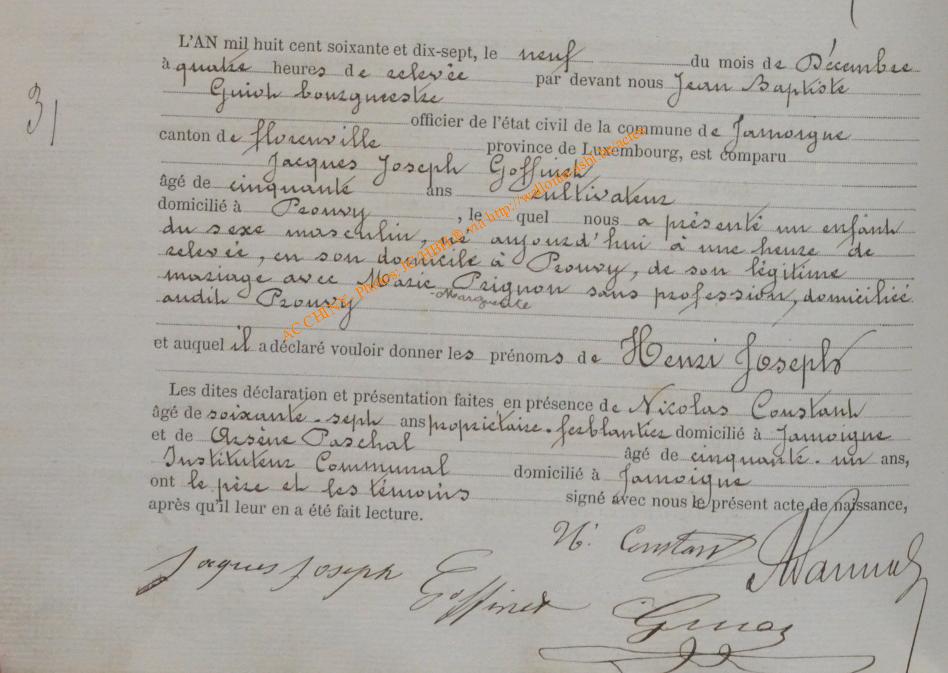 L'AN mil huit cent soixante et dix-sept, le neuf du mois de Décembre
à quatre heures de relevée par devant nous Jean Baptiste
Guiot bourgmestre
31
officier de l'état civil de la commune de Jamoigne
canton de florenville province de Luxembourg, est comparu
Jacques Joseph Goffinet
âgé de cinquante ans cultivateur
domicilié à Prouvy, le quel nous a présenté un enfant
du sexe masculin, né aujourd'hui à une heure de
relevée, en son domicile à Prouvy, de son légitime
mariage avec Marie Prignon sans profession, domiciliée
-Marguerite
audit Prouvy
et auquel il a déclaré vouloir donner les prénoms de Henri Joseph
Les dites déclaration et présentation faites en présence de Nicolas Constant
âgé de soixante-sept ans propriétaire-ferblantier domicilié à Jamoigne
et de Arsène Paschal âgé de cinquante-un ans,
Instituteur Communal domicilié à Jamoigne
ont le père et les témoins signé avec nous le présent acte de naissance,
après qu'il leur en a été fait lecture.
N. Constant
Jaques Joseph Goffinet
AC CHINY, Photos: via http://wallonie.